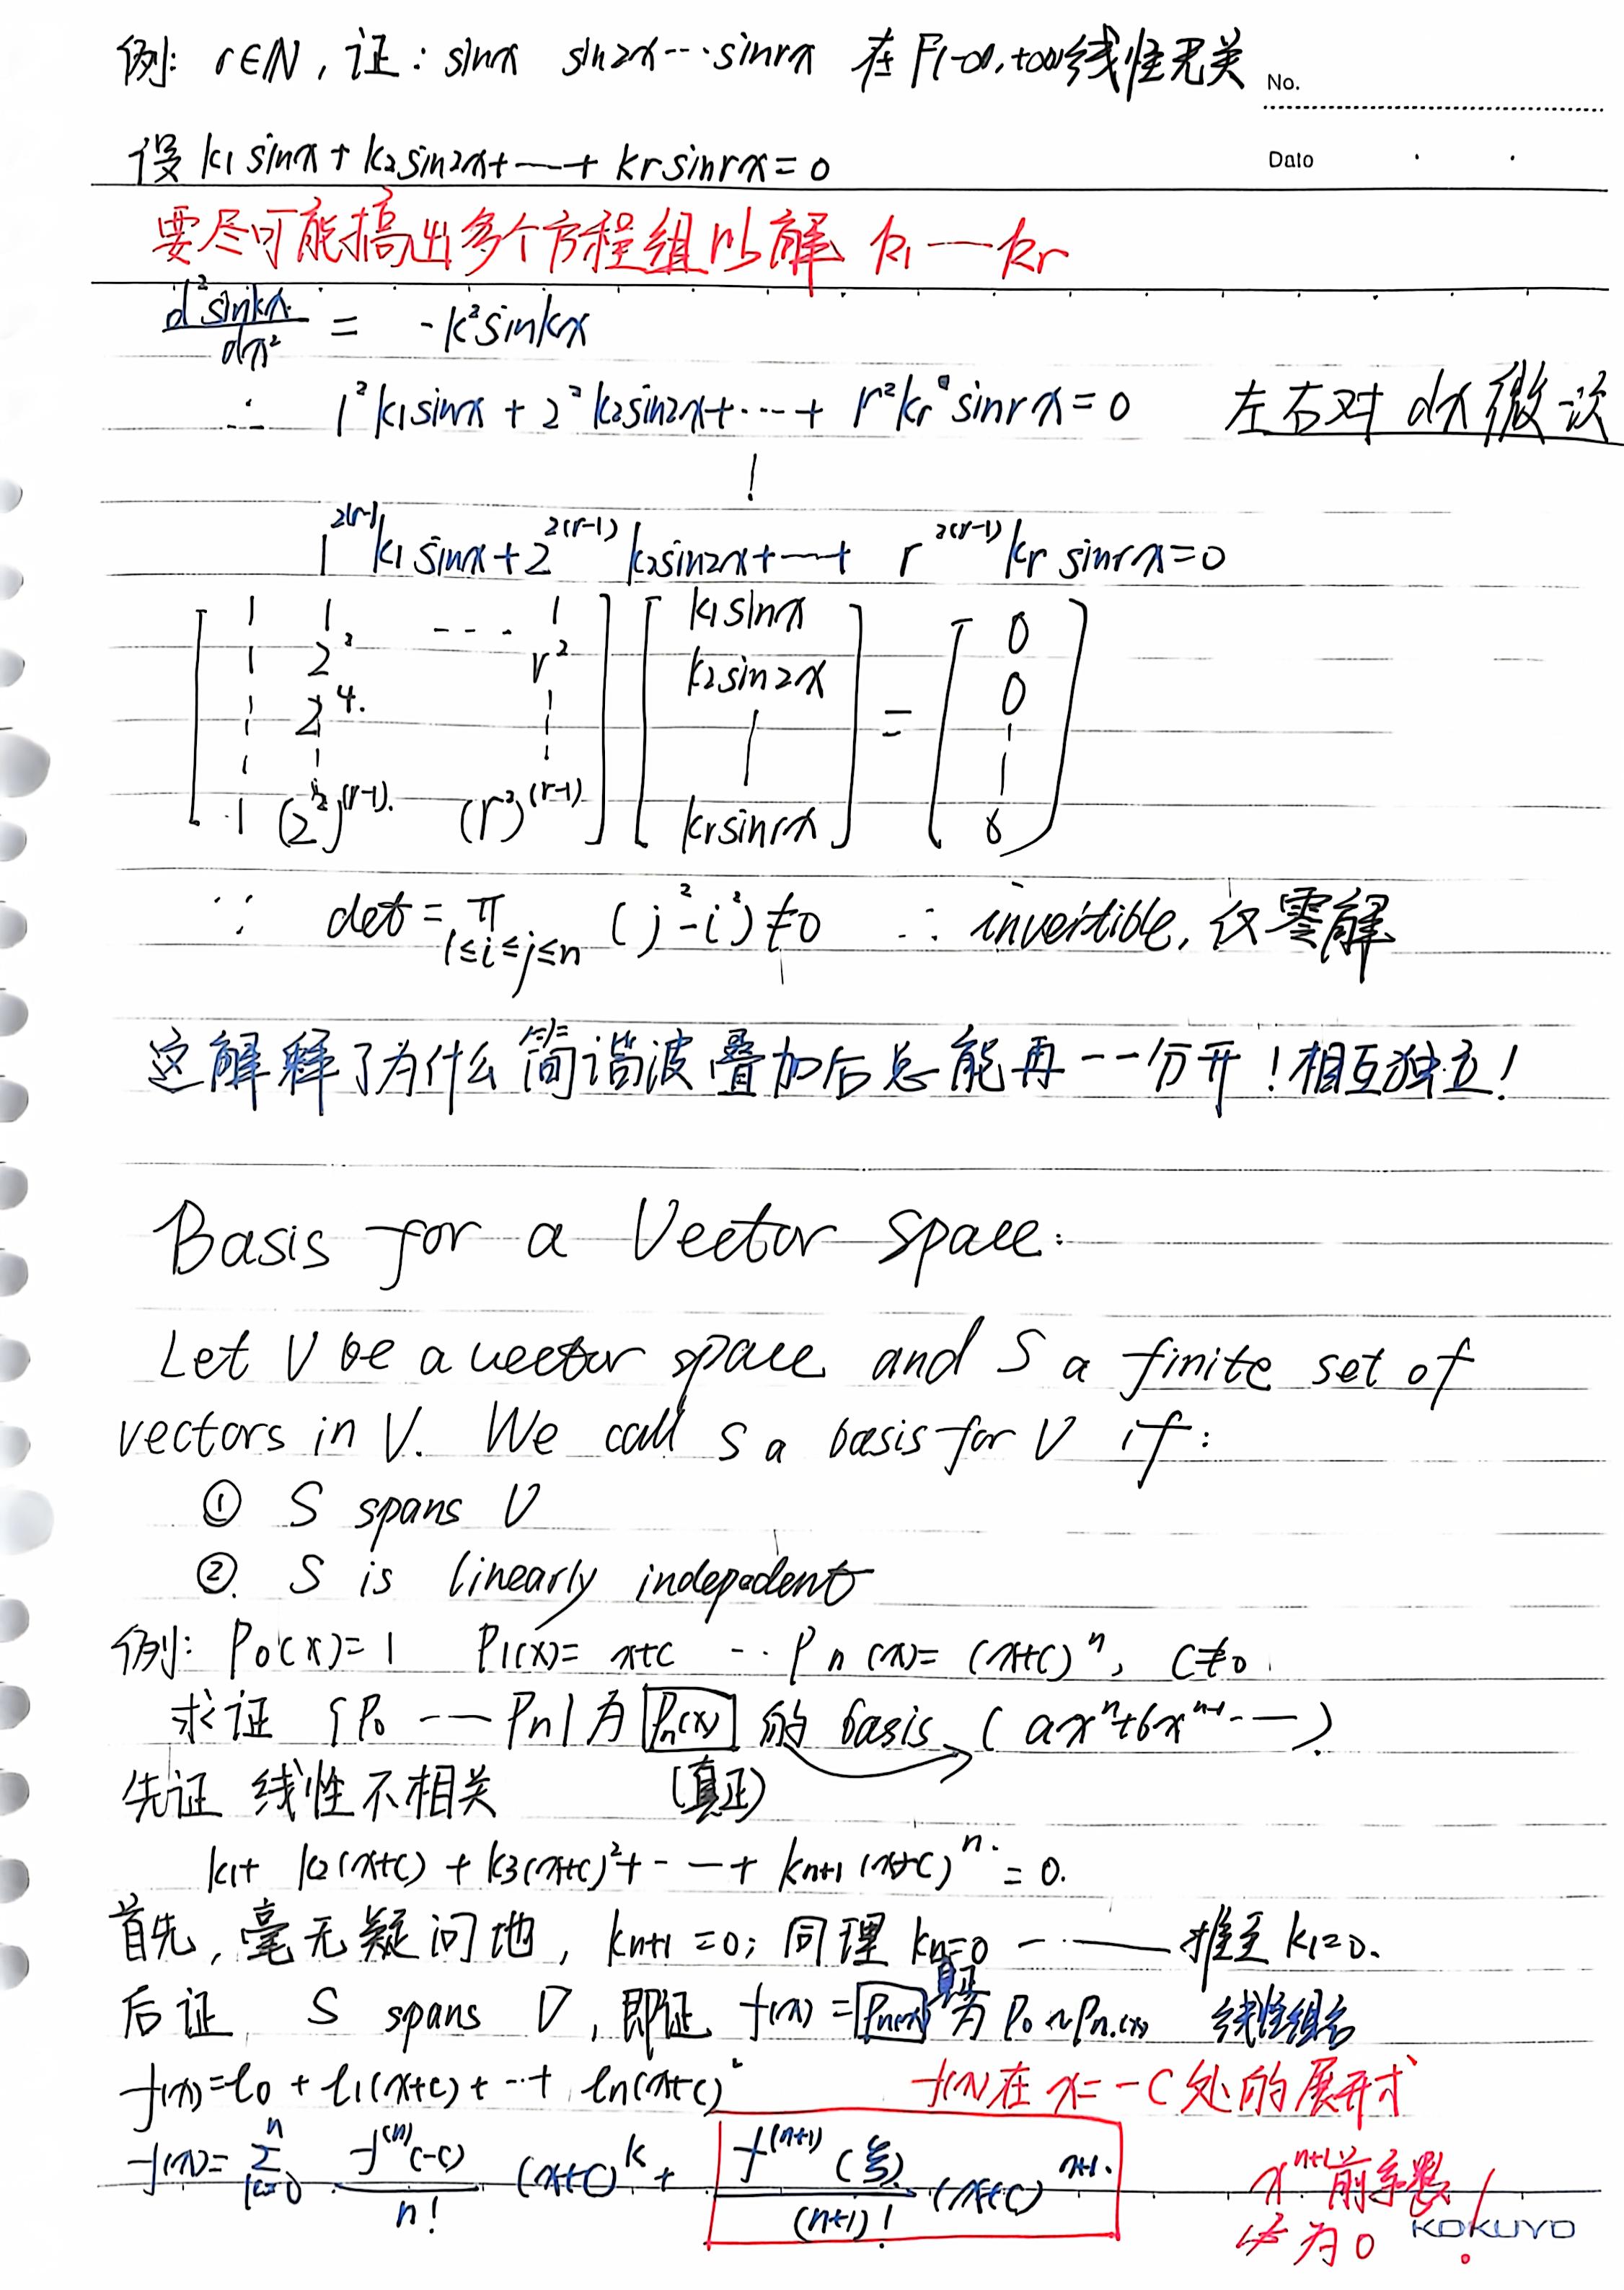 例: r∈N, 证: sinx sin2x…sinrx 在 F(-∞,+∞)线性无关
No.
设 k₁sinx + k₂sin2x+…+ krsinrx=0
Date
要尽可能搞出多个方程组以解 k₁—kr
d²sinkx/dx² = -k²sinkx
∴ 1²k₁sinx + 2²k₂sin2x+…+ r²kr sinrx=0 左右对dx微一次
1^{2(r-1)}k₁sinx+2^{2(r-1)}k₂sin2x+…+ r^{2(r-1)}kr sinrx=0
[1 1 … 1] [k₁sinx] [0]
[1 2² r²] [k₂sin2x] = [0]
[⋮ 2⁴ ⋮] [⋮] [⋮]
[1 (2²)^{(r-1)} (r²)^{(r-1)}] [krsinrx] [0]
∵ det = π 1≤i≤j≤n (j²-i²)≠0 ∴ invertible, 仅零解
这解释了为什么简谐波叠加后总能再一一分开!相互独立!
Basis for a Vector Space:
Let V be a vector space and S a finite set of
vectors in V. We call S a basis for V if:
① S spans V
②. S is linearly indepedent
例: P₀(x)=1 P₁(x)= x+c … Pn(x)= (x+c)ⁿ, c≠0
求证 {P₀ … Pn} 为 Pn(x) 的 basis (axⁿ+bxⁿ⁻¹…)
先证 线性不相关 (真正)
k₁+ k₂(x+c) + k₃(x+c)²+…+ kn+1(x+c)ⁿ = 0.
首先, 毫无疑问地, kn+1=0; 同理 kn=0 …… 推至 k₁=0.
后证 S spans V, 即证 f(x) = Pn(x) 真正 为 P₀~Pn(x) 线性组合
f(x)=l₀ + l₁(x+c)+…+ ln(x+c)² f(x)在 x=-c 处的展开式
f(x)= Σ_{k=0}^{n} f⁽ⁿ⁾(-c)/n! (x+c)ᵏ + f⁽ⁿ⁺¹⁾(ξ)/(n+1)! (x+c)ⁿ⁺¹ xⁿ⁺¹前系数
必为0!
KOKUYO